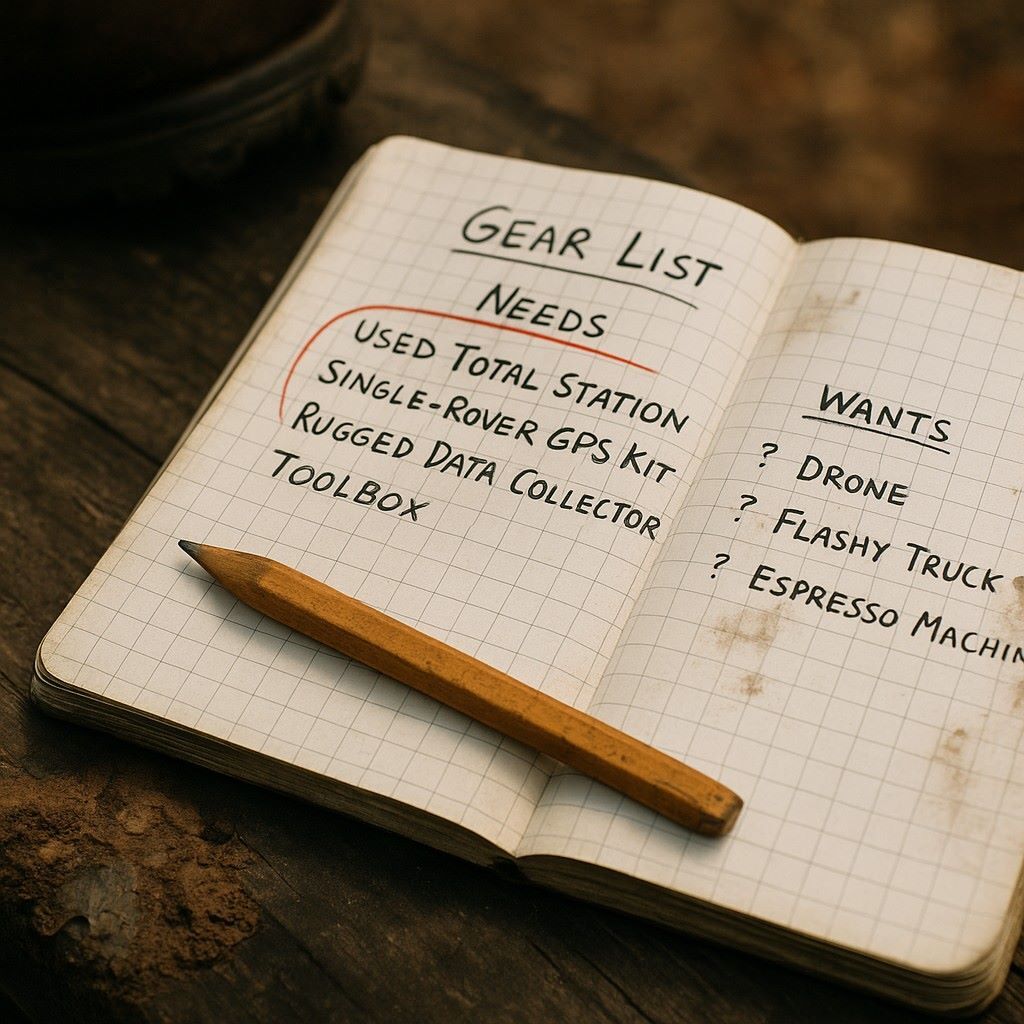 GEAR LIST
NEEDS
USED TOTAL STATION
SINGLE-ROVER GPS KIT
RUGGED DATA COLLECTOR
TOOLBOX
WANTS
? DRONE
? FLASHY TRUCK
? ESPRESSO MACHIN